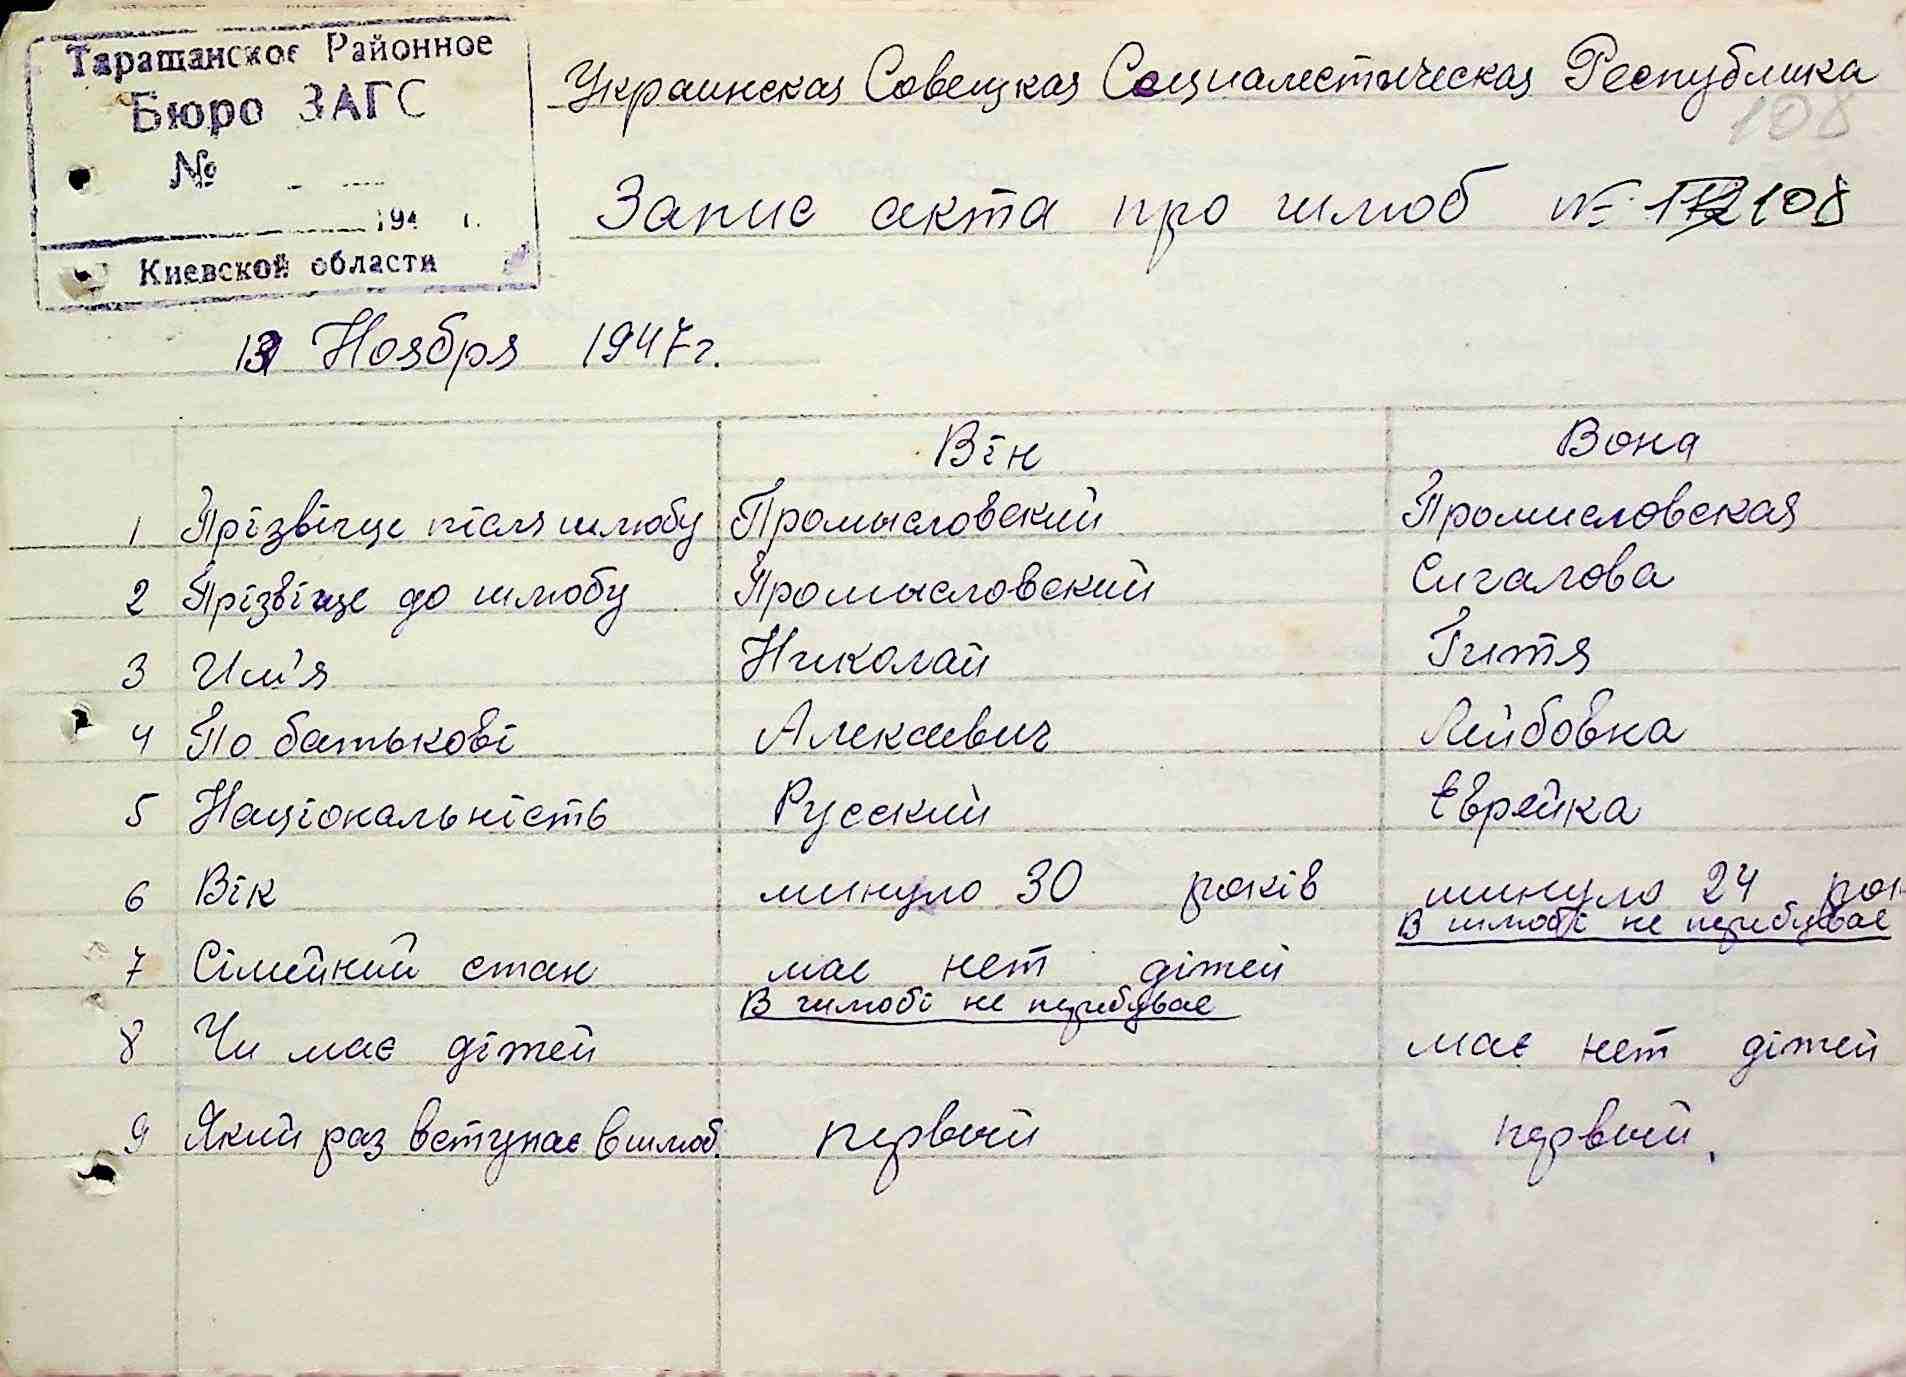 Таращанское Районное
Бюро ЗАГС
№
194 г.
Киевской области
Украинская Совецкая Социалестическая Республика
108
Запис акта про шлюб № 108
Ноября 1947 г.
Він Вона
1 Прізвіще після шлюбу Промысловский Промисловская
2 Прізвіще до шлюбу Промысловский Сигалова
3 Им'я Николай Гитя
4 По батькові Алексеевич Лейбовна
5 Національність Русский Єврейка
6 Вік минуло 30 років минуло 24 рок
В шлюбі не перебуває
7 Сімейний стан має нет дітей
В шлюбі не перебуває
8 Чи має дітей має нет дітей
9 Який раз вступає в шлюб. первый первый.